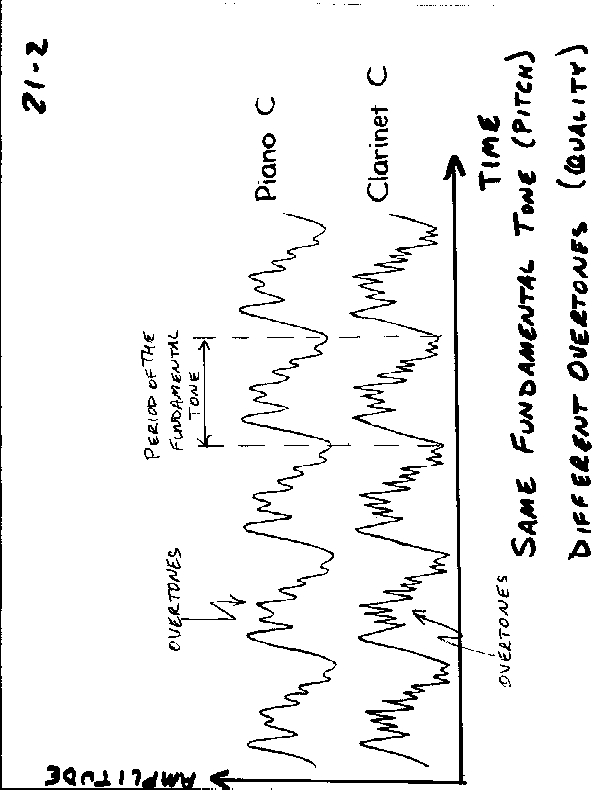 21-2
Piano C
Clarinet C
PERIOD OF THE
FUNDAMENTAL
TONE
OVERTONES
OVERTONES
AMPLITUDE
TIME
SAME FUNDAMENTAL TONE (PITCH)
DIFFERENT OVERTONES (QUALITY)